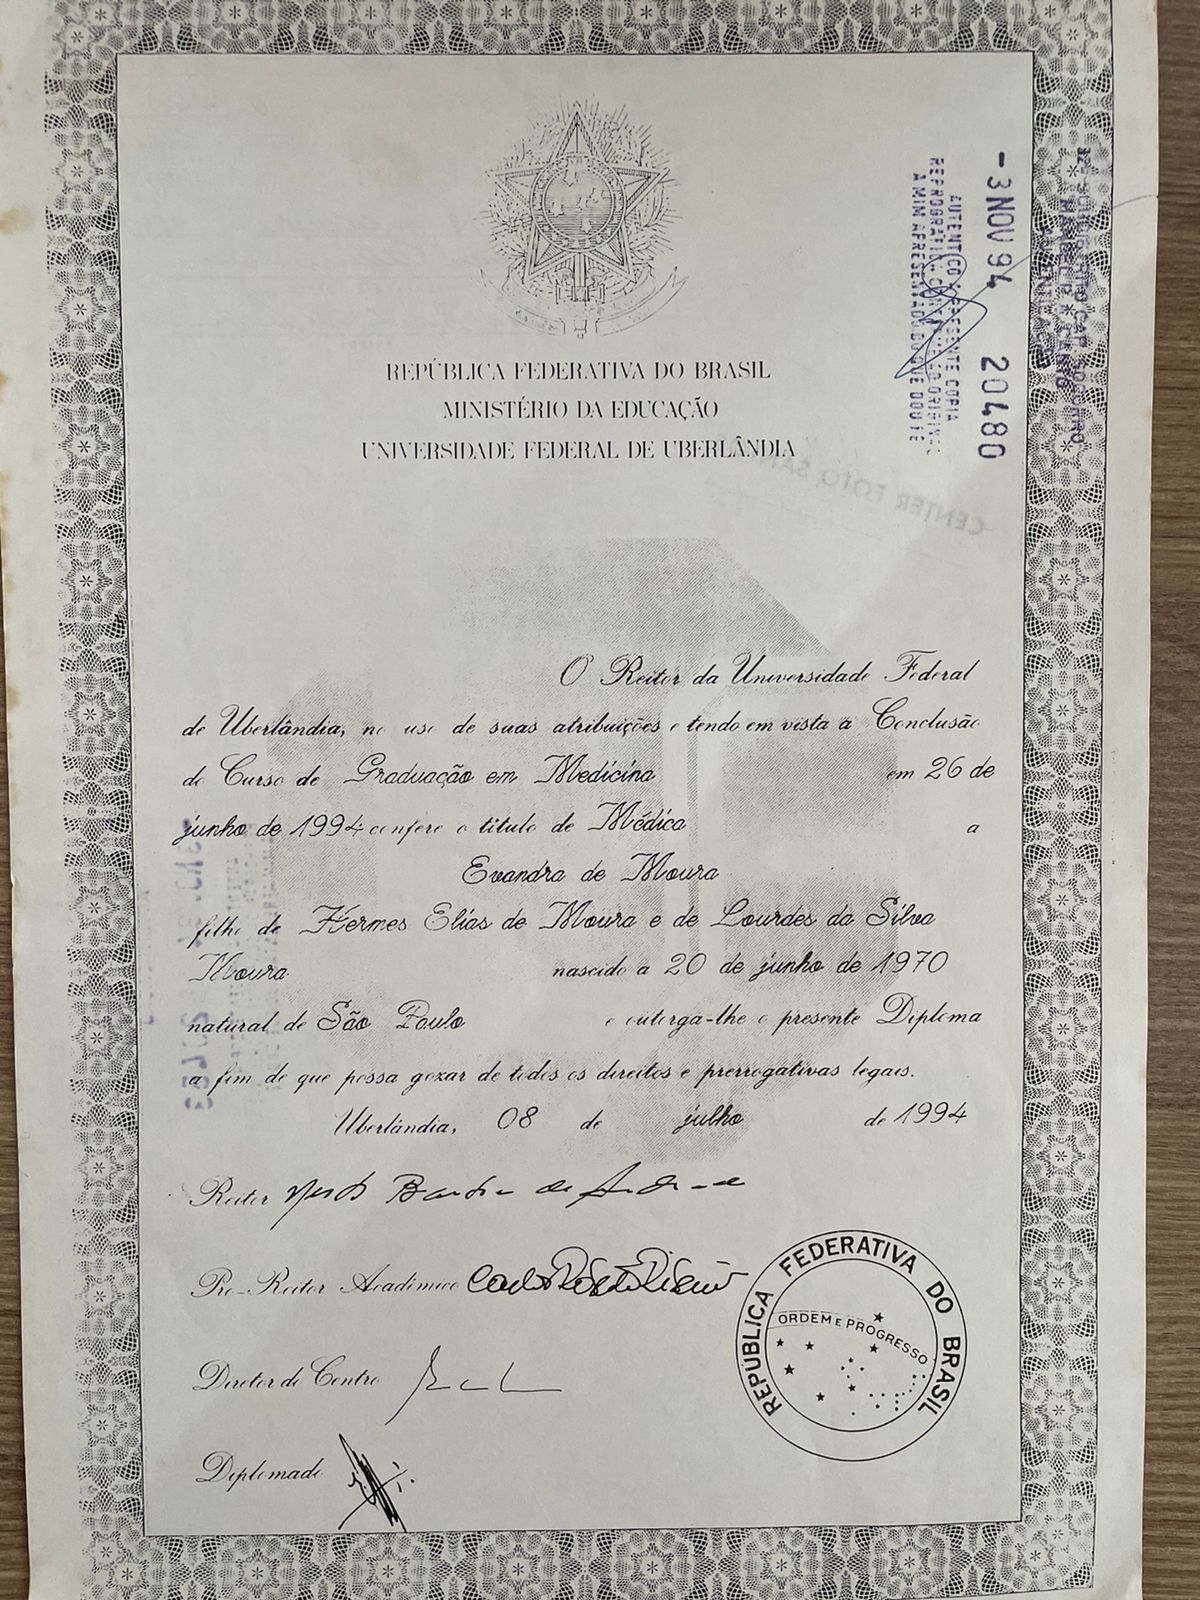 REPÚBLICA FEDERATIVA DO BRASIL
MINISTÉRIO DA EDUCAÇÃO
UNIVERSIDADE FEDERAL DE UBERLÂNDIA
- 3 NOV 94 20480
AUTENTICO A PRESENTE COPIA
REPROGRAFICA ORIGINAL
A MIM APRESENTADO DO QUE DOU FE
CENTER FOTO SAN
O Reitor da Universidade Federal
de Uberlândia, no uso de suas atribuições e tendo em vista a Conclusão
do Curso de Graduação em Medicina em 26 de
junho de 1994 confere o título de Médica a
Evandra de Moura
filho de Hermes Elias de Moura e de Lourdes da Silva
Moura nascido a 20 de junho de 1970
natural de São Paulo e outorga-lhe o presente Diploma
a fim de que possa gozar de todos os direitos e prerrogativas legais.
Uberlândia, 08 de julho de 1994
Reitor
Pro-Reitor Acadêmico
Diretor de Centro
Diplomado
REPUBLICA FEDERATIVA DO BRASIL
ORDEM E PROGRESSO